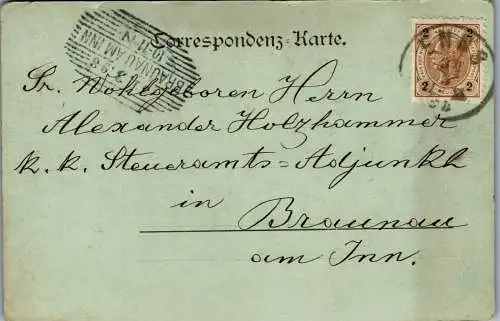 Correspondenz-Karte.
2 2
BRAUNAU AM INN
Sr. Wohlgeboren Herrn
Alexander Holzhammer
k. k. Steueramts=Adjunkt
in
Braunau
am Inn.